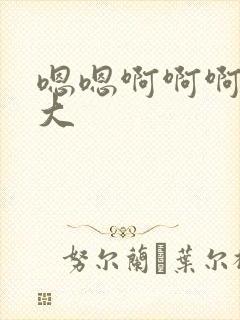 嗯嗯啊啊啊
大
努尔蘭葉尔